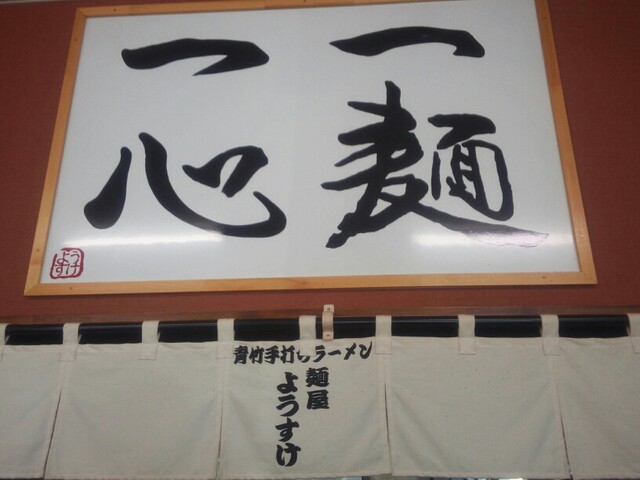 一麺
一心
ようすけ
青竹手打ちラーメン
麺屋
ようすけ